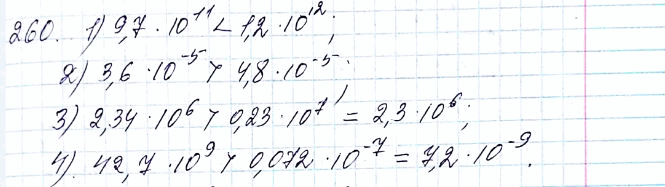 260. 1) 9,7 · 10¹¹ < 1,2 · 10¹²;
2) 3,6 · 10⁻⁵ > 4,8 · 10⁻⁵;
3) 2,34 · 10⁶ > 0,23 · 10⁷ = 2,3 · 10⁶;
4) 42,7 · 10⁹ > 0,072 · 10⁻⁷ = 7,2 · 10⁻⁹.